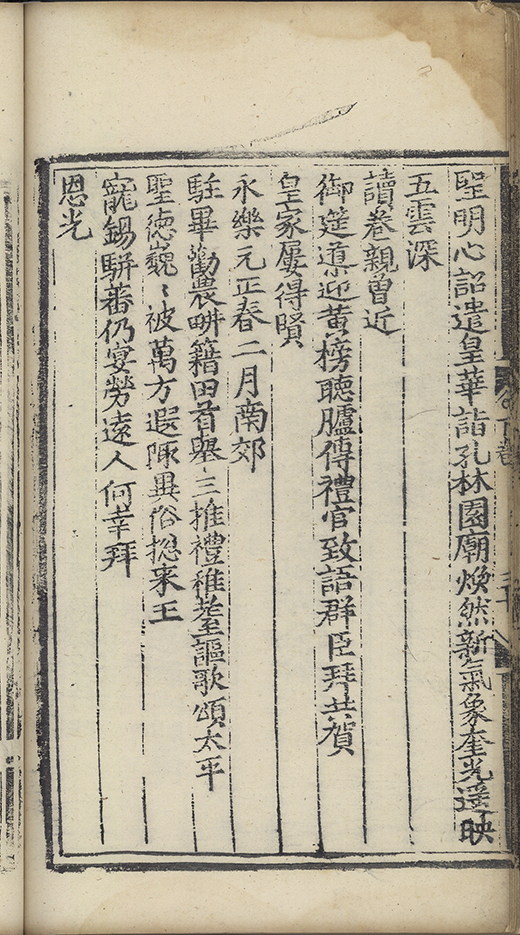 聖明心詔遣皇華詣孔林園廟煥然新氣象奎光遥映
五雲深
讀卷親曾近
御筵導迎黃榜聽臚傳禮官致語群臣拜共賀
皇家屢得賢
永樂元正春二月南郊
駐畢勸農畊籍田首舉三推禮稚耋謳歌頌太平
聖德巍〻被萬方遐陬異俗捴來王
寵錫駢蕃仍宴勞遠人何幸拜
恩光